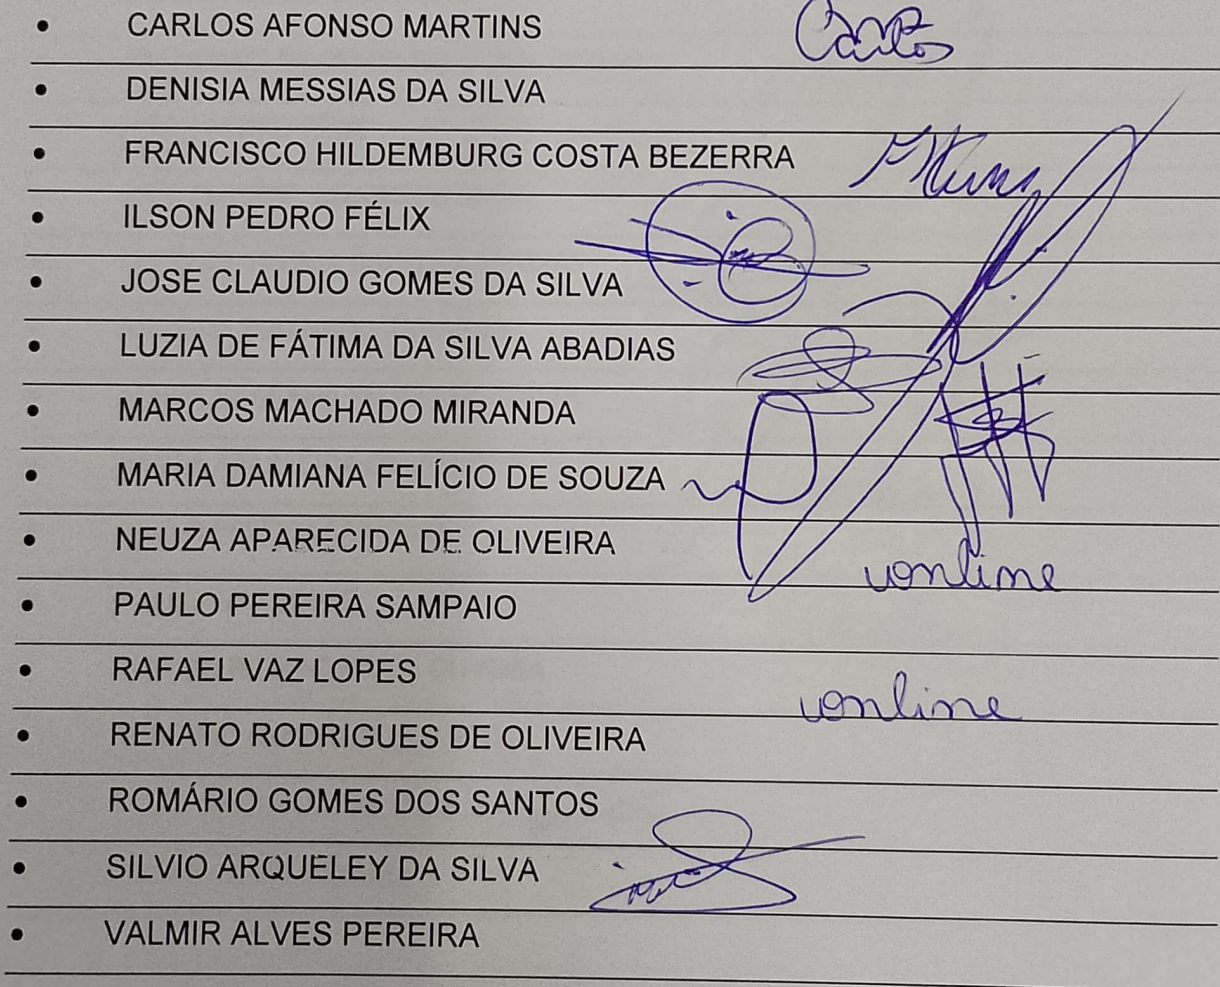 • CARLOS AFONSO MARTINS Carlos
• DENISIA MESSIAS DA SILVA
• FRANCISCO HILDEMBURG COSTA BEZERRA
• ILSON PEDRO FÉLIX
• JOSE CLAUDIO GOMES DA SILVA
• LUZIA DE FÁTIMA DA SILVA ABADIAS
• MARCOS MACHADO MIRANDA
• MARIA DAMIANA FELÍCIO DE SOUZA
• NEUZA APARECIDA DE OLIVEIRA online
• PAULO PEREIRA SAMPAIO
• RAFAEL VAZ LOPES online
• RENATO RODRIGUES DE OLIVEIRA
• ROMÁRIO GOMES DOS SANTOS
• SILVIO ARQUELEY DA SILVA
• VALMIR ALVES PEREIRA